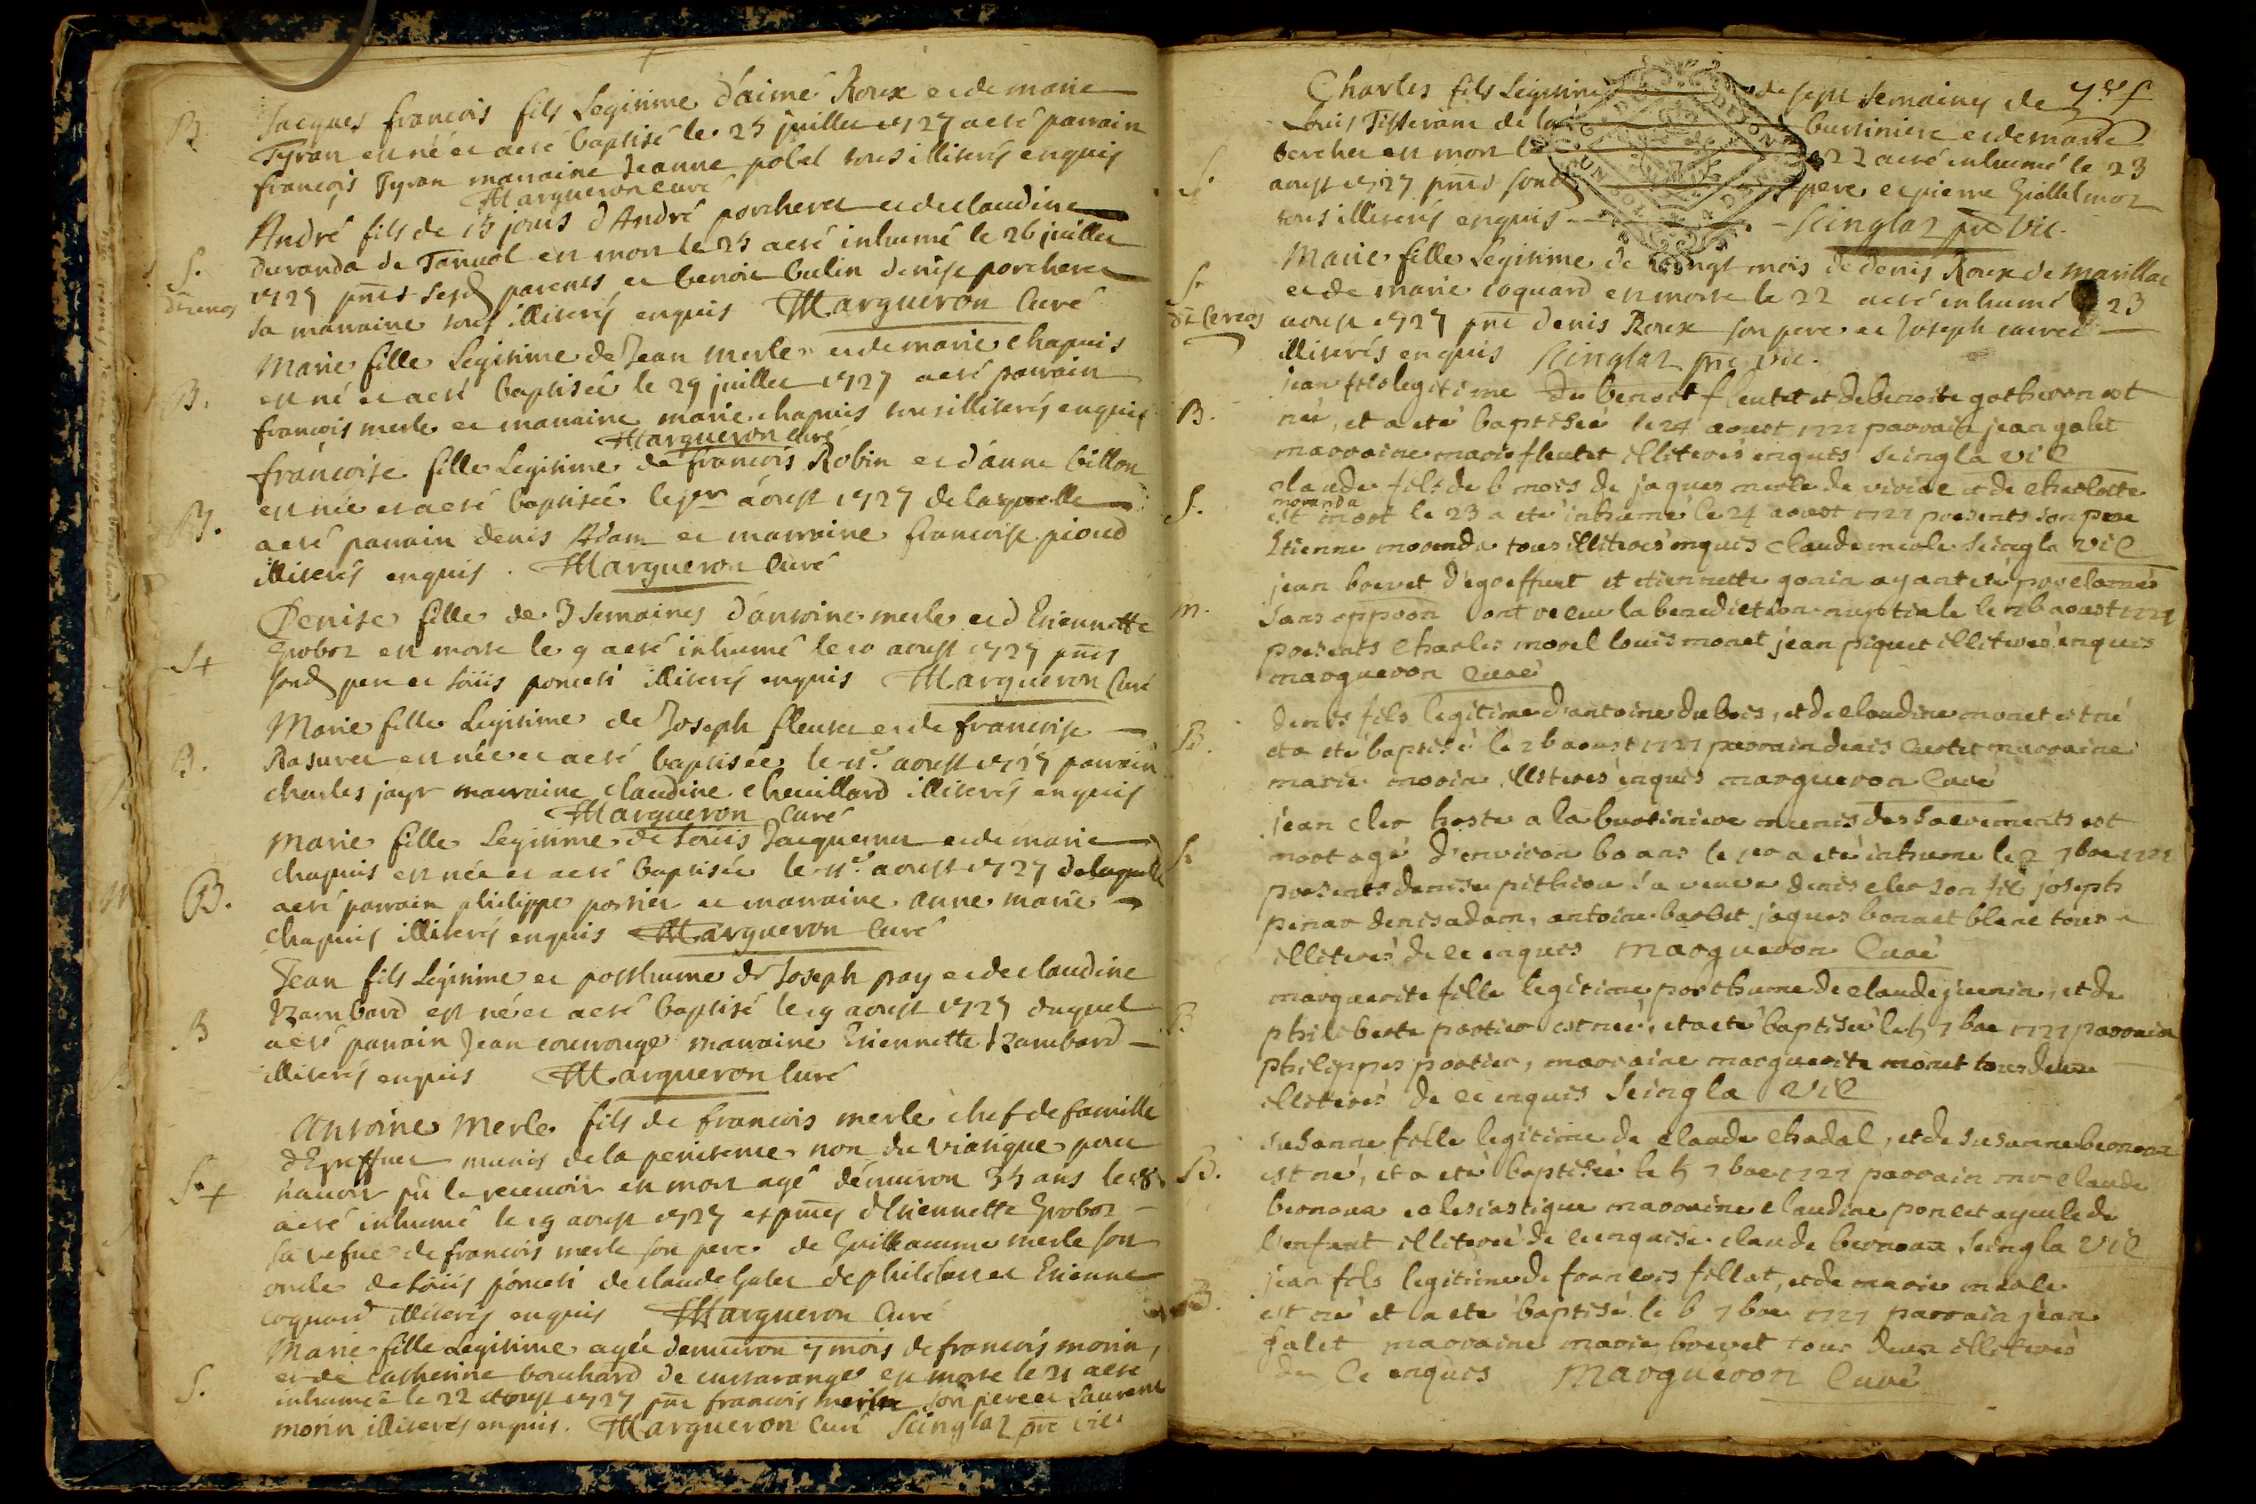 B. Jacques francois fils Legitime d'aimé Roux et de marie
Tyran est né et a eté baptisé le 25 juillet 1727 a eté parrain
françois Tyran marraine Jeanne pobel tous illiterés enquis
Margueron curé
André fils de 15 jours d'André porcheret et de claudine
S. Duranda de Tanuol est mort le 25 a eté inhumé le 26 juillet
1727 pnts sesd parents et benoit bulin denise porcheret
sa marraine tous illiterés enquis Margueron Curé
Marie fille Legitime de Jean merle et de marie chapuis
B. est né et a eté baptisée le 29 juillet 1727 a eté parrain
francois merle et marraine marie chapuis tous illiterés enquis
Margueron Curé
francoise fille Legitime de francois Robin et d'anne billon
B. est née et a eté baptisée le pr aoust 1727 de laquelle
a eté parrain denis Adam et marraine francoise pioud
illiterés enquis. Margueron Curé
Denise fille de 3 semaines d'antoine merle et d'Etiennette
S+ Groboz est morte le 9 a eté inhumé le 10 aoust 1727 pnts
sond pere et Loüis poncet illiterés enquis Margueron Curé
Marie fille Legitime de Joseph fleutet et de francoise
B. Rasuret est née et a eté baptisée le 11e aoust 1727 parrain
charles jayr marraine claudine chevillard illiterés enquis
Margueron Curé
Marie fille Legitime de Loüis Jacquemet et de marie
chapuis est née et a eté baptisée le 11e aoust 1727 de laquelle
B. a eté parrain philippe portier et marraine anne marie
chapuis illiterés enquis Margueron Curé
Jean fils Légitime et posthume de Joseph pay et de claudine
B Rambard est né et a eté baptisé le 19 aoust 1727 duquel
a eté parrain Jean courouge marraine Etiennette Rambard
illiterés enquis Margueron Curé
Antoine Merle fils de francois merle chef de famille
d'Egreffuet munis de la penitence non du viatique pour
S+ n'avoir pû le recevoir est mort agé d'environ 35 ans le 18
a eté inhumé le 19 aoust 1727 es pntes d'Etiennette Groboz
sa vefue de francois merle son pere de Guillaume merle son
oncle de Loüis poncet de claude Galet de philibert et Etienne
coquard illiterés enquis Margueron Curé
Marie fille Legitime agée d'environ 7 mois de francois morin,
S. et de catherine bouchard de est morte le 21 a eté
inhumée le 22 aoust 1727 pnt francois morin son pere et Laurent
morin illiterés enquis. Margueron Curé Seinglaz pre vic
Charles fils Legitime de sept semaines de
Louis Tisserant de la burtiniere et de marie
S. bercher est mort le 22 a eté inhumé le 23
aoust 1727 pnts sond pere et pierre Guillelmoz
tous illiterés enquis Seinglaz pre Vic.
S. Marie fille Legitime de vingt mois de denis Roux de Marillac
et de marie coquard est morte le 22 a eté inhumé 23
aoust 1727 pnt denis Roux son pere et Joseph
illiterés enquis Seinglaz pre vic.
jean fils legitime de benoit fleutet et de benoite gotheron est
B. né, et a eté baptisé le 24 aoust 1727 parrain jean galet
marraine marie fleutet illiterés enquis Seingla vic
claude fils de 6 mois de jaques merle de et de charlotte
moranda
S. est mort le 23 a eté inhumé le 24 aoust 1727 presents son pere
Etienne moranda tous illiterés enquis claude merle Seingla vic
jean brevet d'egreffuet et etiennette gonin ayant eté proclamés
m. sans oppoon ont receu la benediction nuptiale le 26 aoust 1727
presents charles morel louis monet jean piquet illiterés enquis
margueron Curé
denis fils legitime d'antoine dubois, et de claudine monet est né
B. et a eté baptisé le 26 aoust 1727 parrain denis marraine
marie morin illiterés enquis margueron Curé
jean cler hoste a la burtiniere munis des sacrements est
S. mort agé d'environ 60 ans le 1er a eté inhumé le 2 7bre 1727
presents denise pithiou sa veuve denis cler son fils joseph
denis adam, antoine barbet jaques bonnet blanc tous
illiterés de ce enquis Margueron Curé
marguerite fille legitime posthume de claude juenin, et de
B. philiberte portier est née, et a eté baptisé le 5 7bre 1727 parrain
philippes portier, marraine marguerite monet tous deux
illiterés de ce enquis Seingla vic
susanne fille legitime de claude chadal, et de susanne bernoux
B. est né, et a eté baptisée le 5 7bre 1727 parrain mr claude
bernoux eclesiastique marraine claudine poncet ayeule de
l'enfant illiterée de ce enquise claude bernoux Seingla vic
jean fils legitime de francois fillat, et de marie merle
B. est né et a eté baptisé le 6 7bre 1727 parrain jean
galet marraine marie brevet tous deux illiterés
de ce enquis Margueron Curé